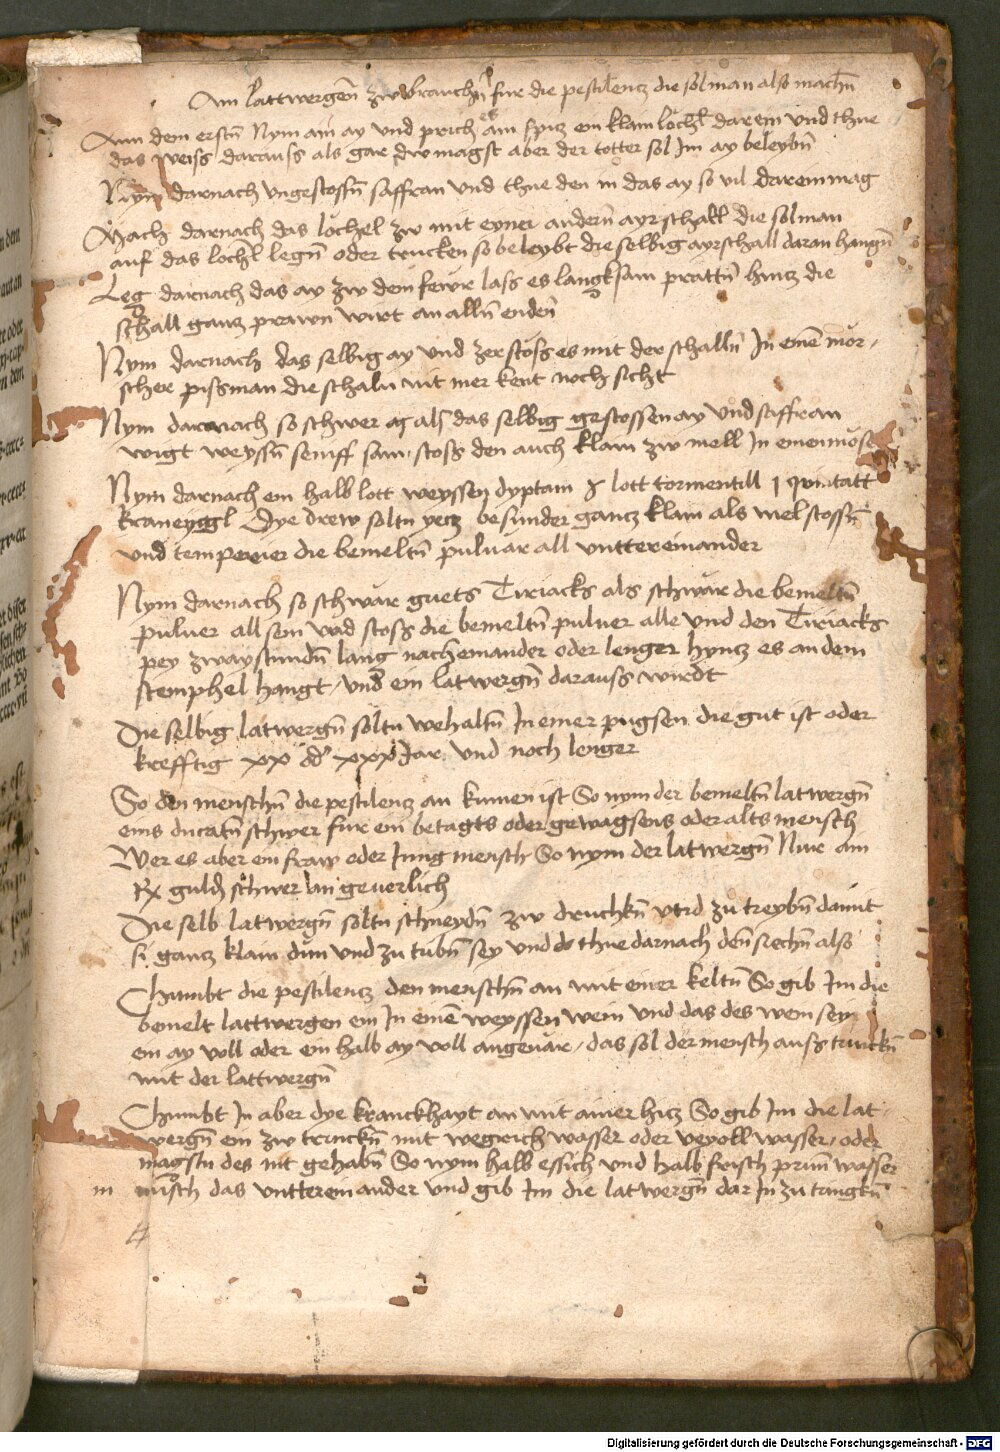 Ain lattwergen zw brauchn fur die pestilencz die sol man also machn
Ann dem erstn Nym ain ay und prich es am spicz ein klain lochl darein und thue
das weiss darauss als gar dw magst aber der totter sol Im ay beleybn
Nym darnach ungestossn saffran und thue den in das ay so vil darein mag
Mach darnach das lochel zw mit eyner andern ayrschall die sol man
auf das lochl legn oder trucken so beleybt die selbig ayrschall daran hangn
Leg darnach das ay zw dem fewr lass es langksam prattn hincz die
schall gancz prawn wirt an alln enden
Nym darnach das selbig ay und zerstoss es mit der schalln In einem mor,
scher piss man die schaln nit mer kent noch sicht
Nym darnach so schwer als das selbig gestossen ay und saffran
wigt weyssn seniff sam, stoss den auch klain zw mell In einem
Nym darnach ein halb lott weyssen dyptam lott tormentill 1 quintatt
kraneyggl Dye drew soltu yecz besunder gancz klain als mel stossn
und temperier die bemeltn pulvar all unttereinander
Nym darnach so schwar guets Tiriacks als schwar die bemeltn
pulver all sein und stoss die bemeltn pulver alle und den Tiriacks
pey zway stundn lang nacheinander oder lenger hyncz es an dem
stemphel hangt, und ein latwergn darauss wirdt
Die selbig latwergn soltu wehaltn In einer pugsen die gut ist oder
krefftig xx od xxx Jar und noch lenger
So den menschn die pestilencz an kumen ist So nym der bemeltn latwergn
eins ducatn schwer fur ein betagts oder gewagsens oder alts mensch
Wer es aber ein fraw oder Jung mensch So nym der latwergn Nur ain
guld schwer ungeverlich
Die selb latwergn soltu schneydn zw druckn und zu treybn damit
si gancz klain dun und zu tribn sey und thue darnach den siechn also
Chumbt die pestilencz den menschn an mit einer keltn So gib Im die
bemelt lattwergen ein In einem weyssen wein und das des wein sey
ein ay voll oder ein halb ay voll angevar, das sol der mensch auss trinckn
mit der lattwergn
Chumbt In aber dye kranckhayt an mit ainer hicz So gib Im die lat,
wergn ein zw trinckn mit wegrich wasser oder veyoll wasser, oder
magstu des nit gehabn So nym halb essich und halb frisch prun wasser
m misch das unttereinander und gib Im die latwergn dar In zu
Digitalisierung gefördert durch die Deutsche Forschungsgemeinschaft - DFG